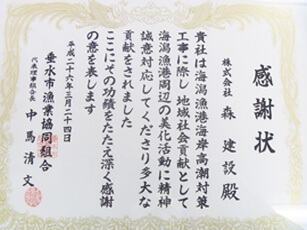 感謝状
株式会社
森建設殿
貴社は海潟漁港海岸高潮対策
工事に際し地域社会貢献として
海潟漁港周辺の美化活動に精神
誠意対応してくださり多大な
貢献をされました
ここにその功績をたたえ深く感謝
の意を表します
平成二十六年三月二十四日
垂水市漁業協同組合
代表理事組合長
中馬清文